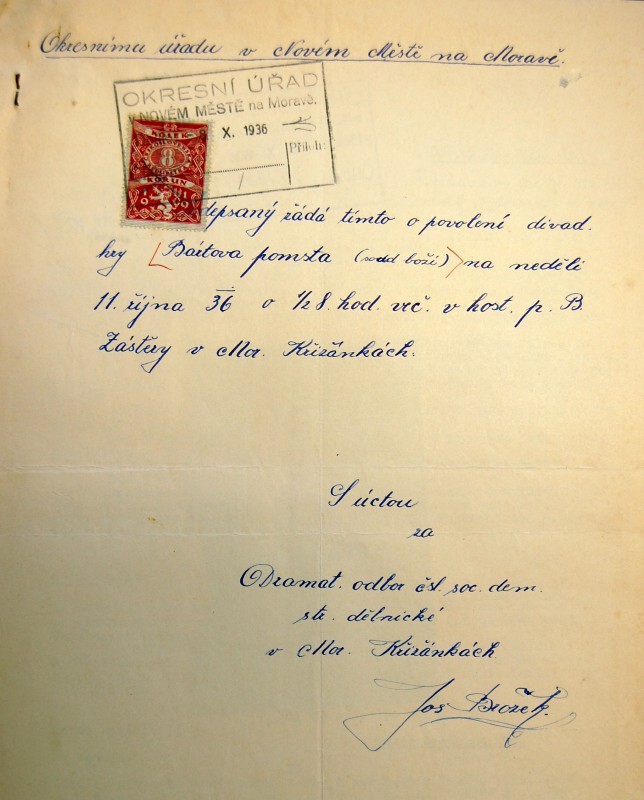 Okresnímu úřadu v Novém Městě na Moravě.
OKRESNÍ ÚŘAD
NOVÉM MĚSTĚ na Moravě.
X. 1936
Příloh:
KOLEK
8
KORUN
depsaný řádá tímto o povolení divad.
hry Bártova pomsta (soud boží) na neděli
11. října 36 o 1/2 8. hod. več. v host. p. B.
Zástěry v Mor. Křižánkách.
S úctou
za
Dramat. odbor čsl. soc. dem.
str. dělnické
v Mor. Křižánkách
Jos Brožek.